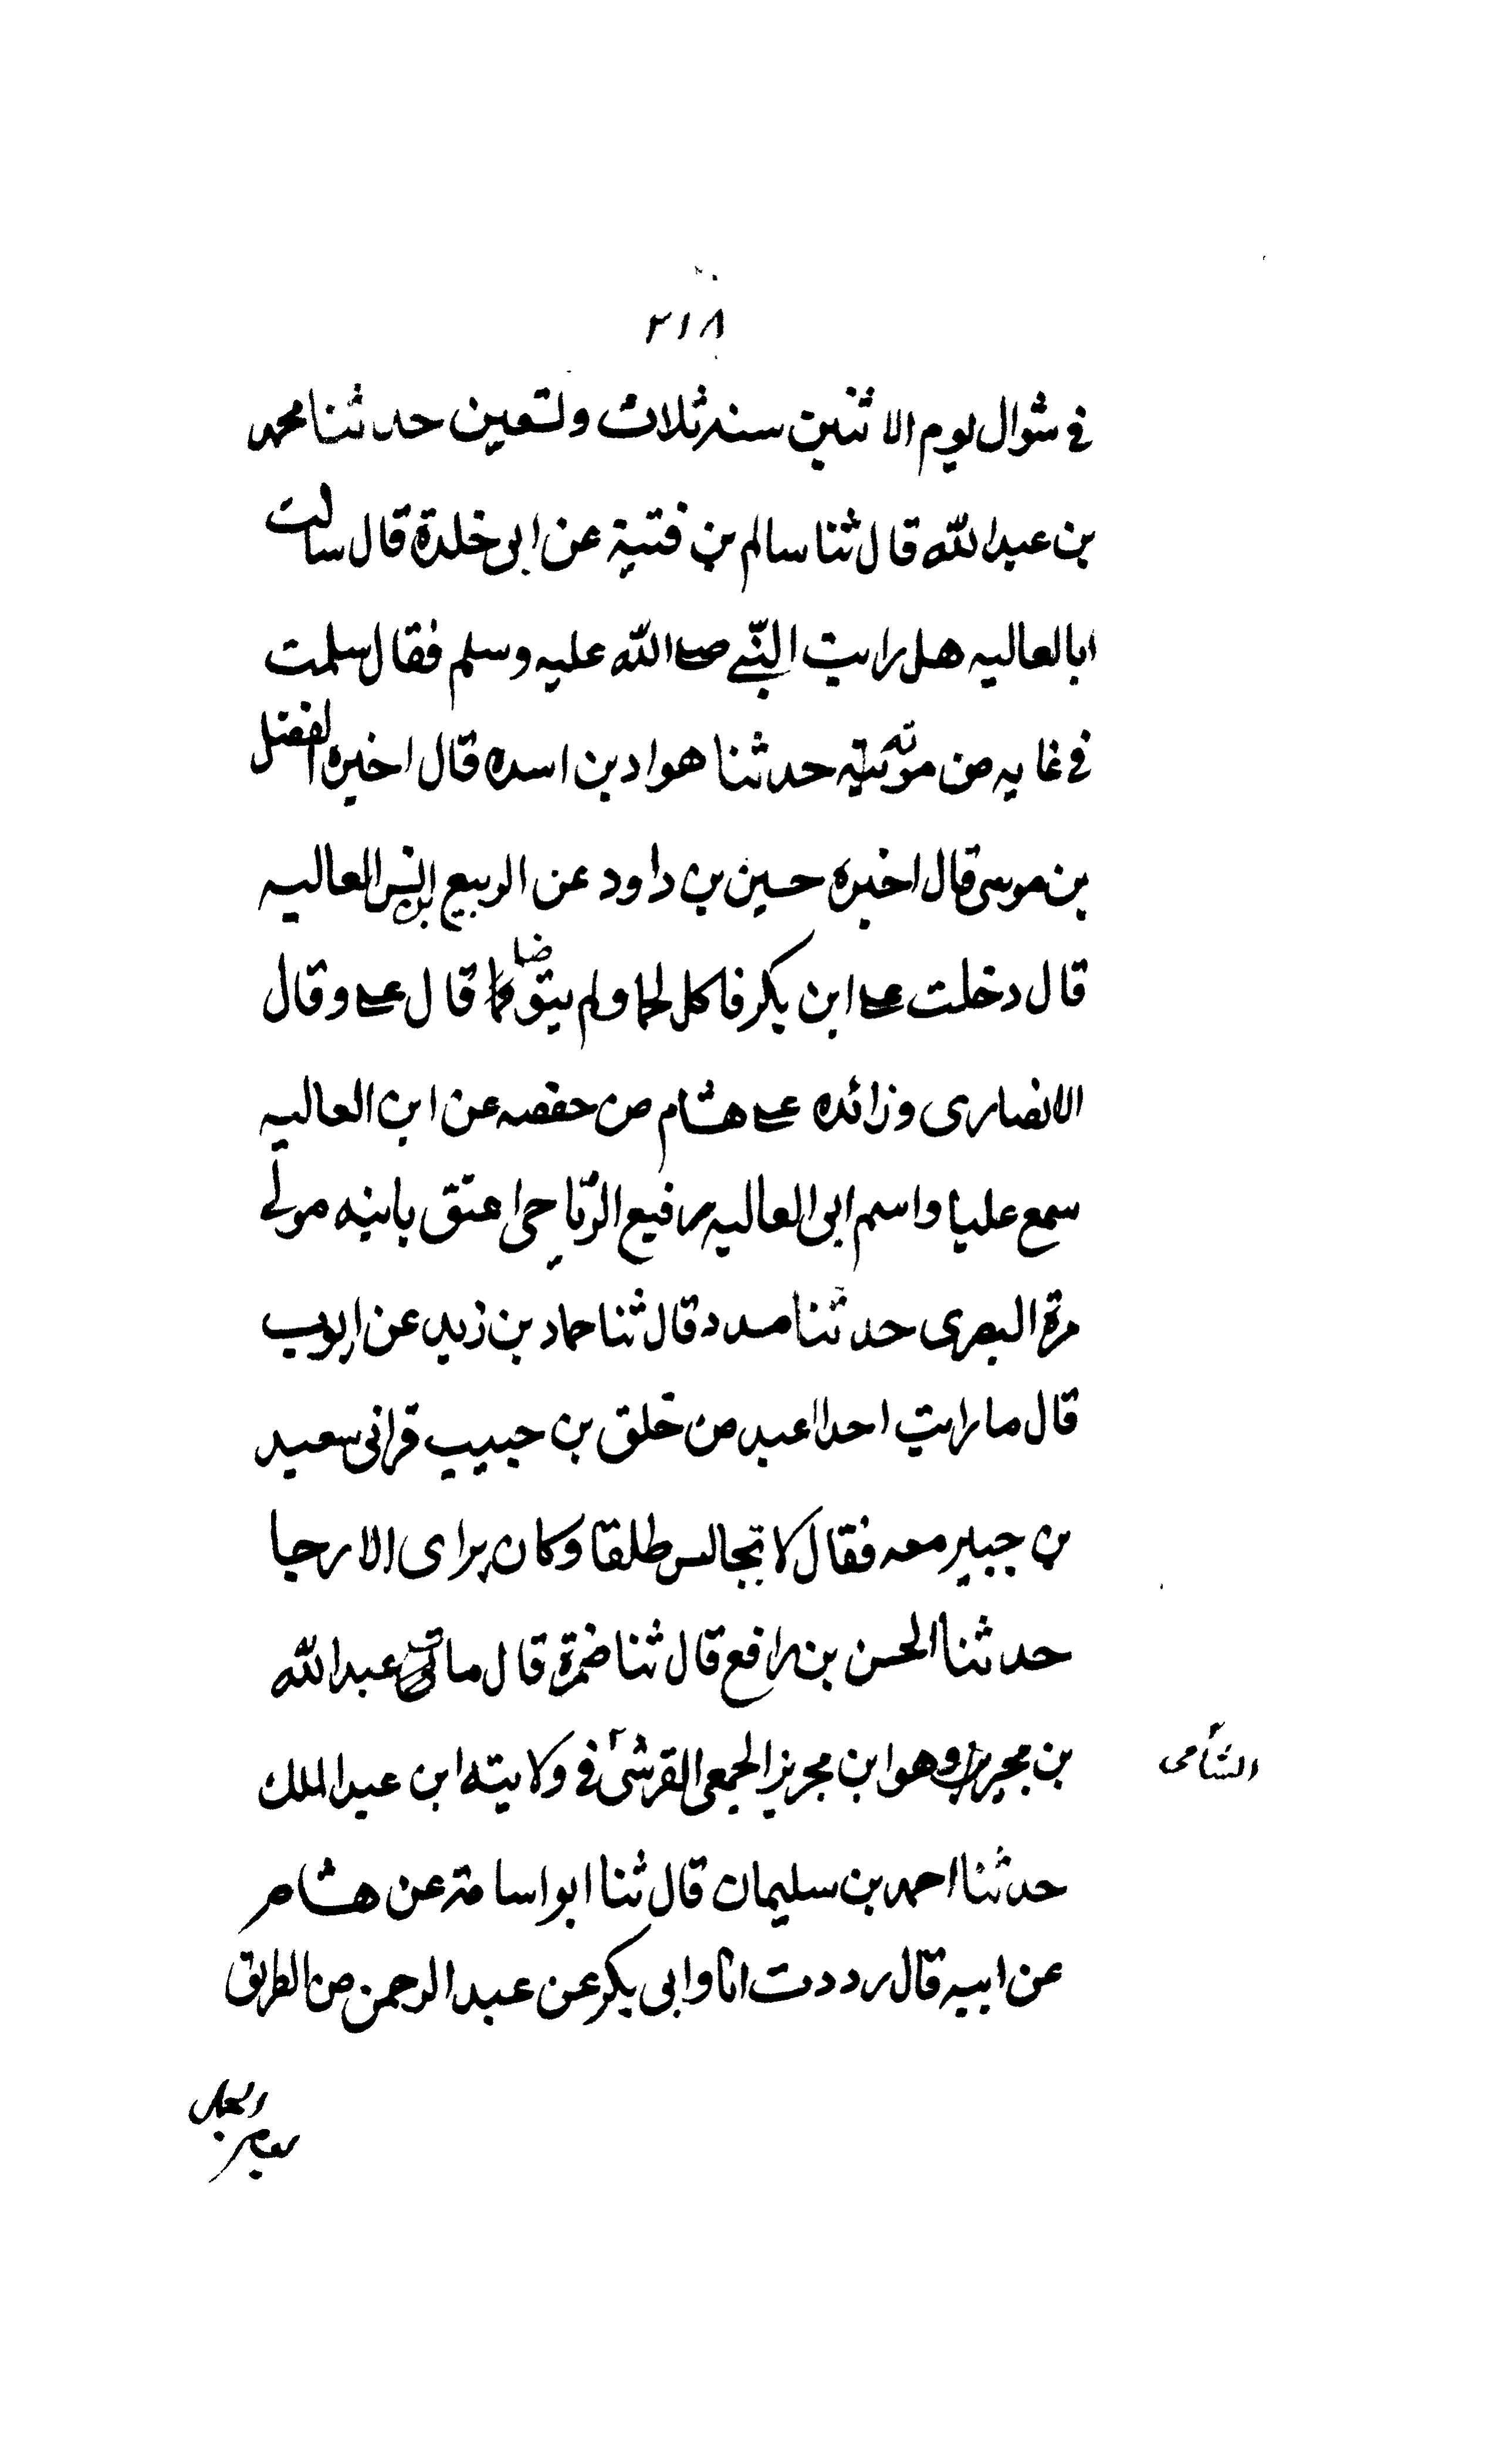 ٢١٨
في شوال يوم الاثنين سنه ثلاث وتسعين حدثنا محمد
بن عبد الله قال ثنا سالم بن قتيبة عن ابى خلدة قال سالت
ابا العاليه هل رايت النبي صلى الله عليه وسلم فقال سلمت
في غايه من موته حدثنا هواد بن اسده قال اخبره الفضل
بن موسى قال اخبره حسين بن داود عن الربيع بن انس العاليه
قال دخلت على ابن بكر فاكل لحما ولم يتوضا قال على وقال
الانصارى وزائده على هشام من حفصه عن ابن العاليه
سمع عليا واسم ابى العاليه رفيع الرياحى اعتق بابنيه مولى
مرة البصرى حدثنا مسدد قال ثنا حماد بن زيد عن ايوب
قال ما رايت احدا اعبد من خلق بن حبيب قرانى سعيد
بن جبير معه فقال لا تجالس طلقا وكان يراى الارجا
حدثنا الحسن بن رافع قال ثنا ضمرة قال مات عبد الله
بن محيريز وهو ابن محريز الجمعى القرشى في ولايته ابن عبد الملك
الشامى
حدثنا احمد بن سليمان قال ثنا ابو اسامة عن هشام
عن ابيه قال رددت انا وابى بكر عن عبد الرحمن من الطريق